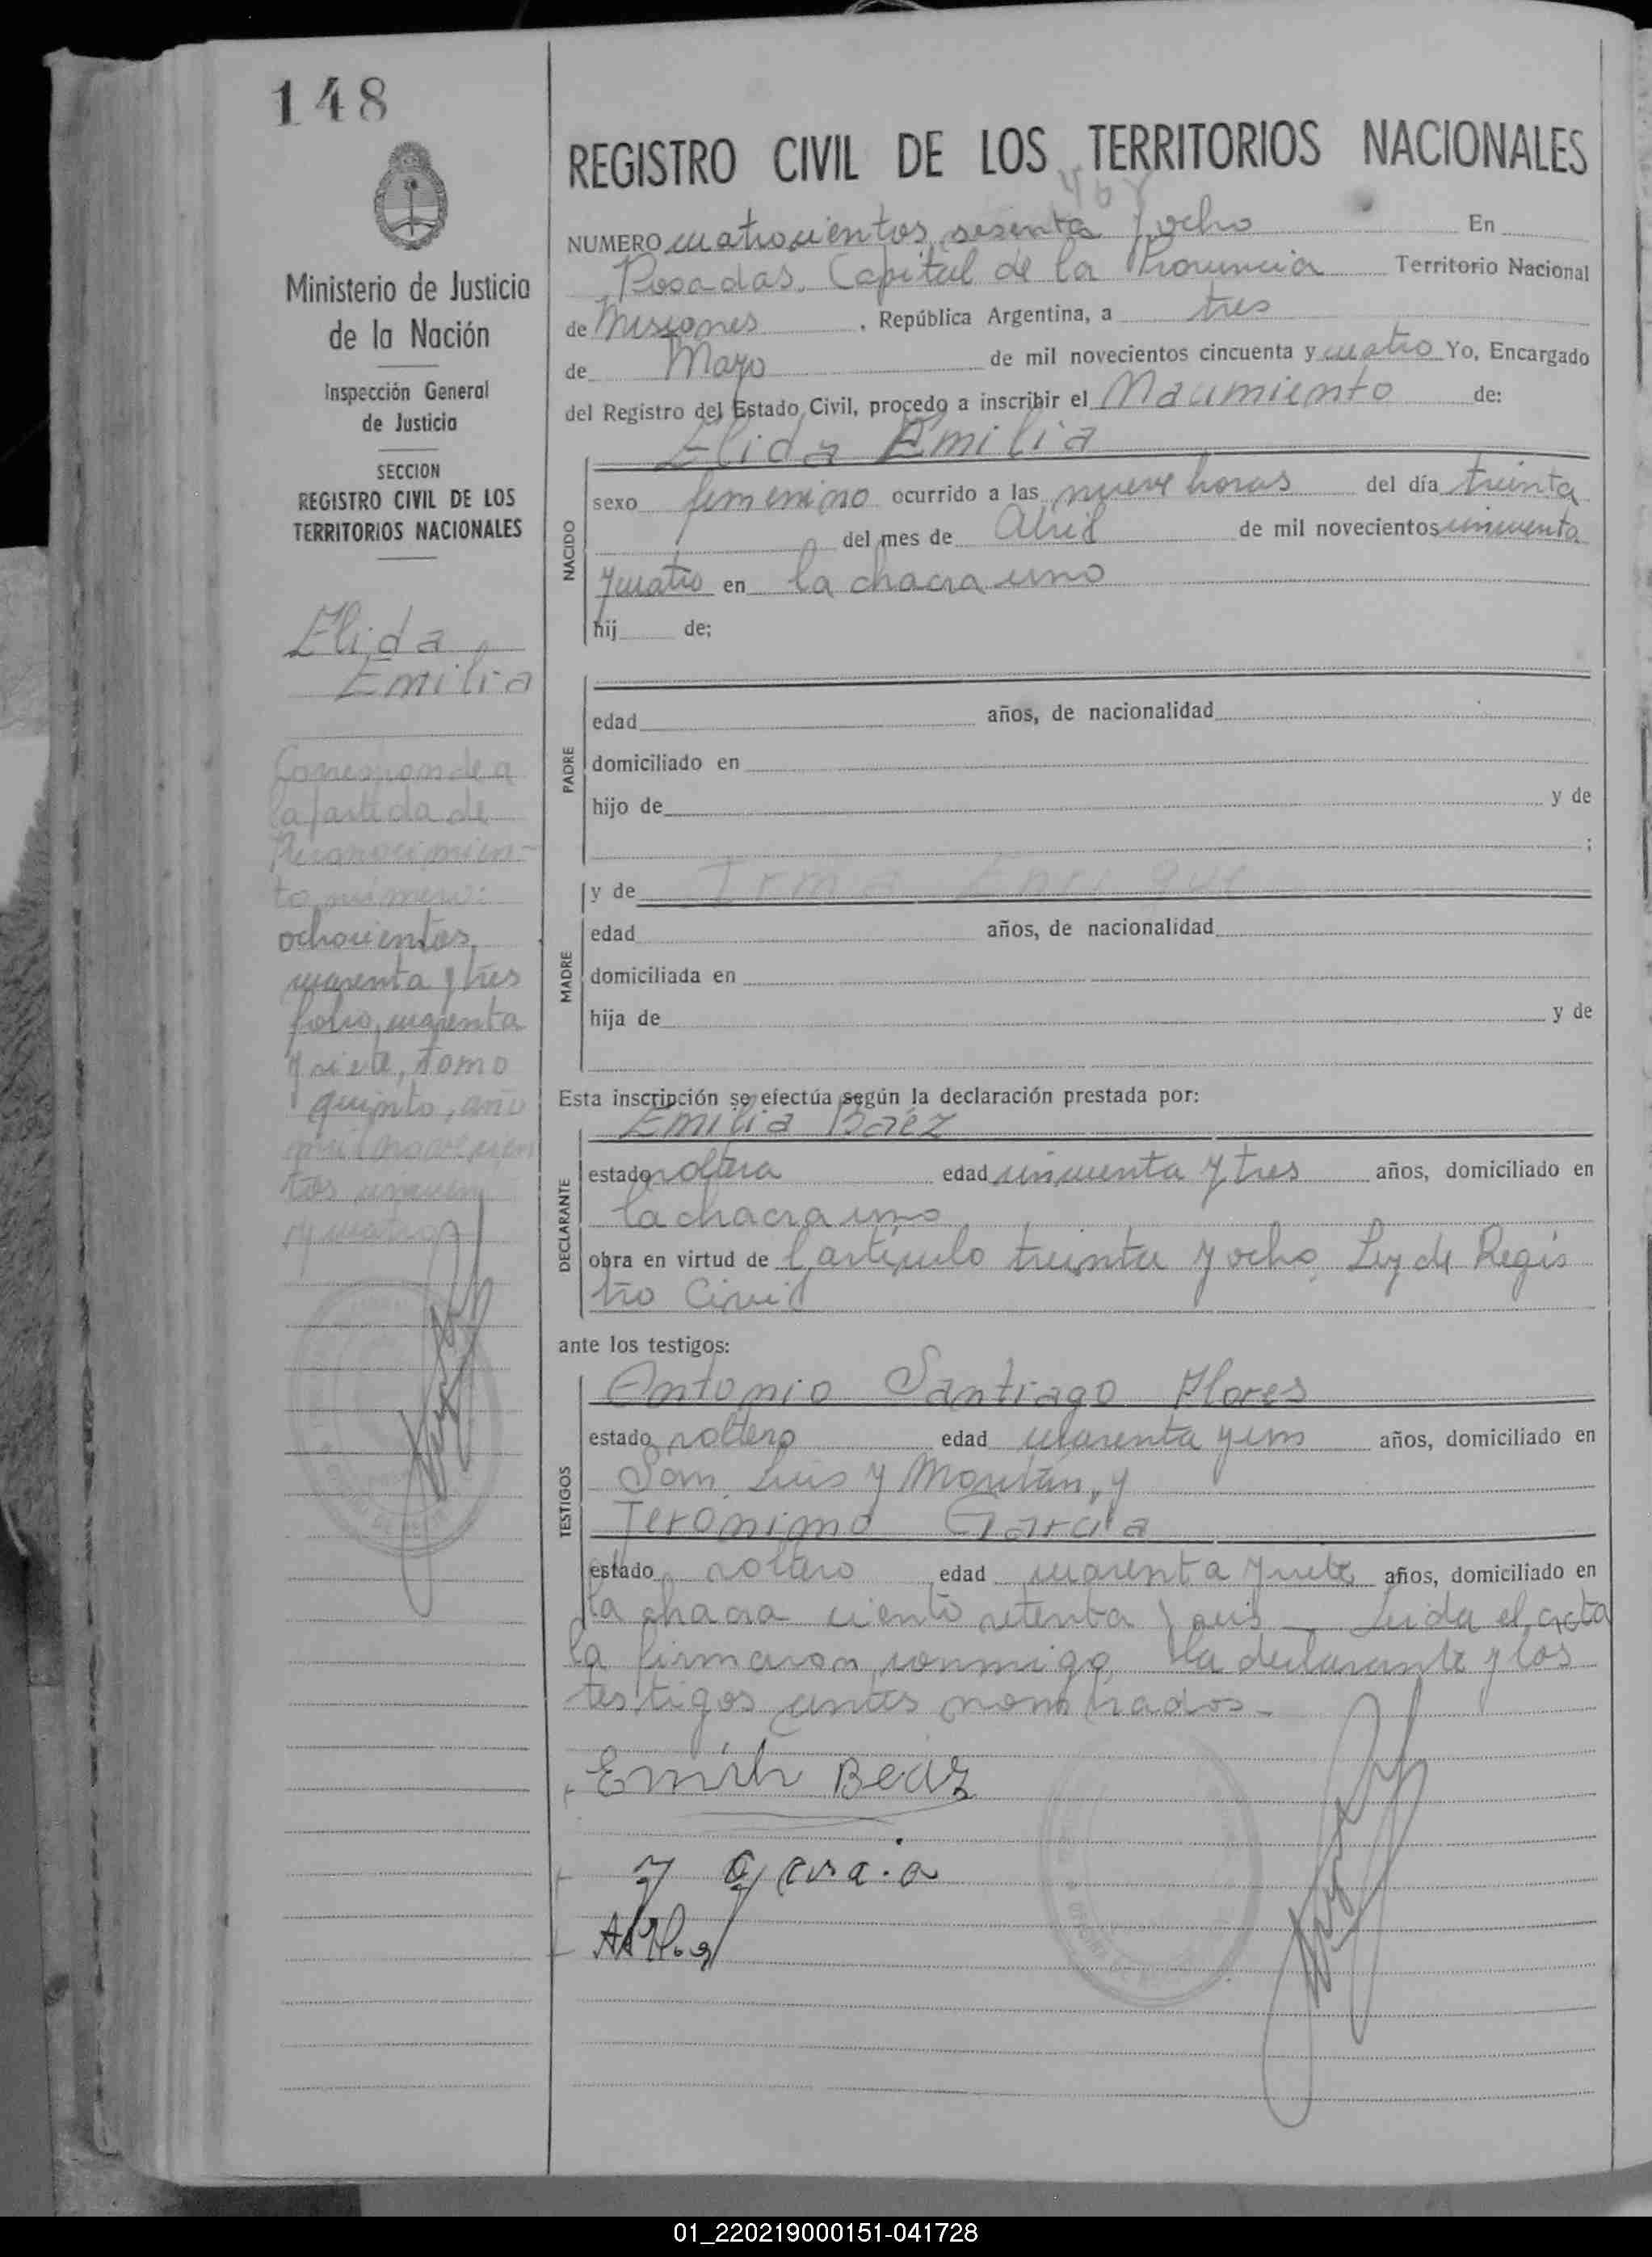 148
Ministerio de Justicia
de la Nación
Inspección General
de Justicia
SECCION
REGISTRO CIVIL DE LOS
TERRITORIOS NACIONALES
Elida
Emilia
Corresponde a
la partida de
Reconocimien-
to número:
ochocientos
cuarenta y tres
folio, cuarenta
y siete, tomo
quinto, año
mil novecien
tos cincuen
y cuatro
REGISTRO CIVIL DE LOS TERRITORIOS NACIONALES
468
NUMERO cuatrocientos sesenta y ocho En
Posadas, Capital de la Provincia Territorio Nacional
de Misiones, República Argentina, a tres
de Mayo de mil novecientos cincuenta y cuatro Yo, Encargado
del Registro del Estado Civil, procedo a inscribir el Nacimiento de:
Elida Emilia
NACIDO
sexo femenino ocurrido a las nueve horas del día treinta
del mes de Abril de mil novecientos cincuenta
y cuatro en la chacra uno
hij de;
PADRE
edad años, de nacionalidad
domiciliado en
hijo de y de
;
MADRE
y de Irma Enrique
edad años, de nacionalidad
domiciliada en
hija de y de
Esta inscripción se efectúa según la declaración prestada por:
DECLARANTE
Emilia Baéz
estado soltera edad cincuenta y tres años, domiciliado en
la chacra uno
obra en virtud de l artículo treinta y ocho, Ley de Regis
tro Civil
ante los testigos:
TESTIGOS
Antonio Santiago Flores
estado soltero edad cuarenta y un años, domiciliado en
San Luis y y
Jerónimo García
estado soltero edad cuarenta y siete años, domiciliado en
la chacra ciento setenta y seis Leida el acta
la firmaron conmigo la declarante y los
testigos antes nombrados.-
Emili Beaz
J garcia
01_220219000151-041728